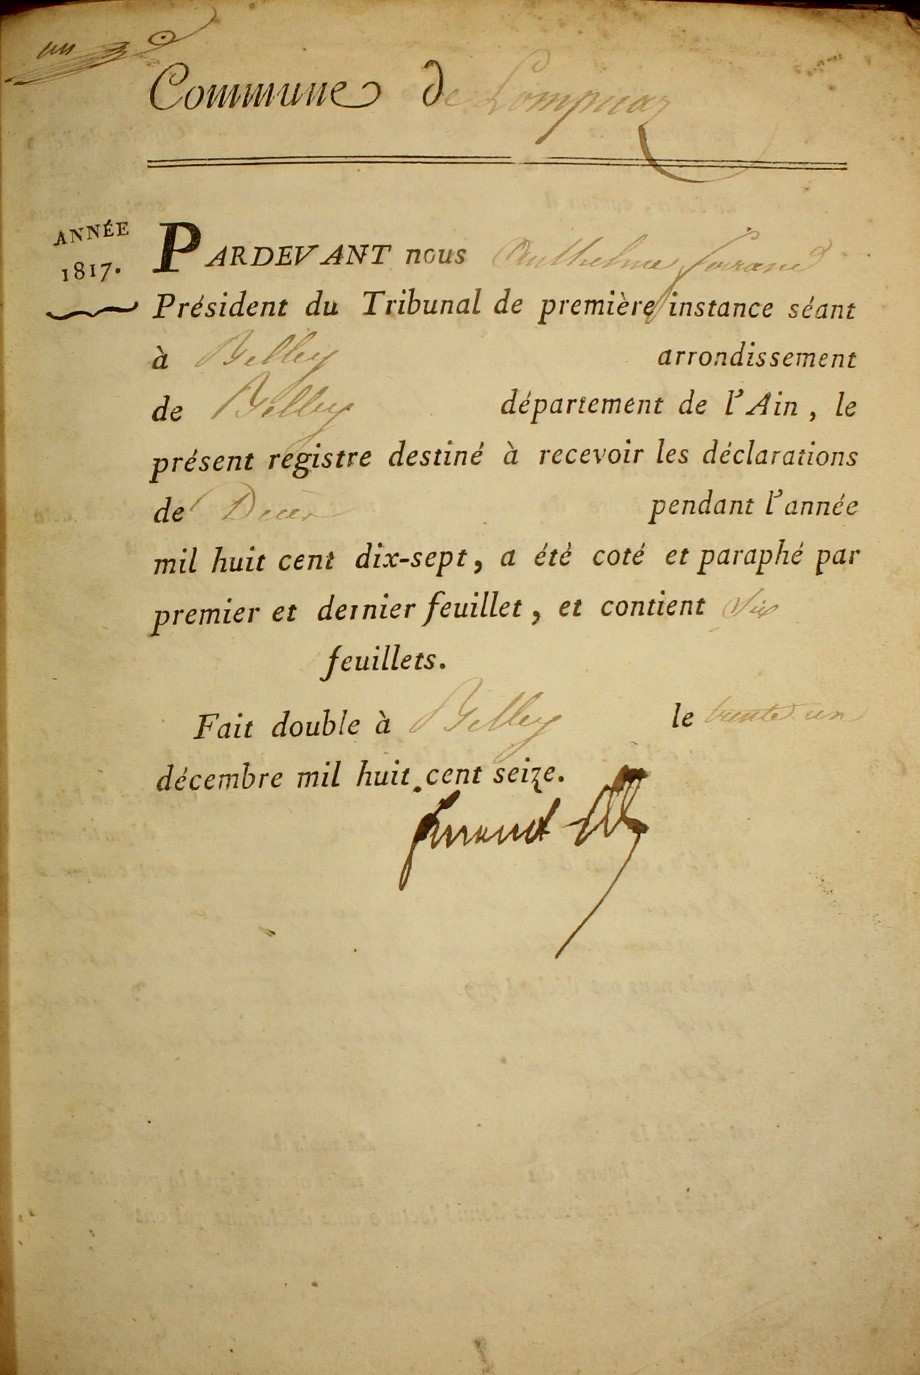 un
Commune de Lompnaz
ANNÉE
1817.
PARDEVANT nous Anthelme Ferrand
Président du Tribunal de première instance séant
à Belley arrondissement
de Belley département de l'Ain, le
présent registre destiné à recevoir les déclarations
de Décès pendant l'année
mil huit cent dix-sept, a été coté et paraphé par
premier et dernier feuillet, et contient six
feuillets.
Fait double à Belley le trente un
décembre mil huit cent seize.